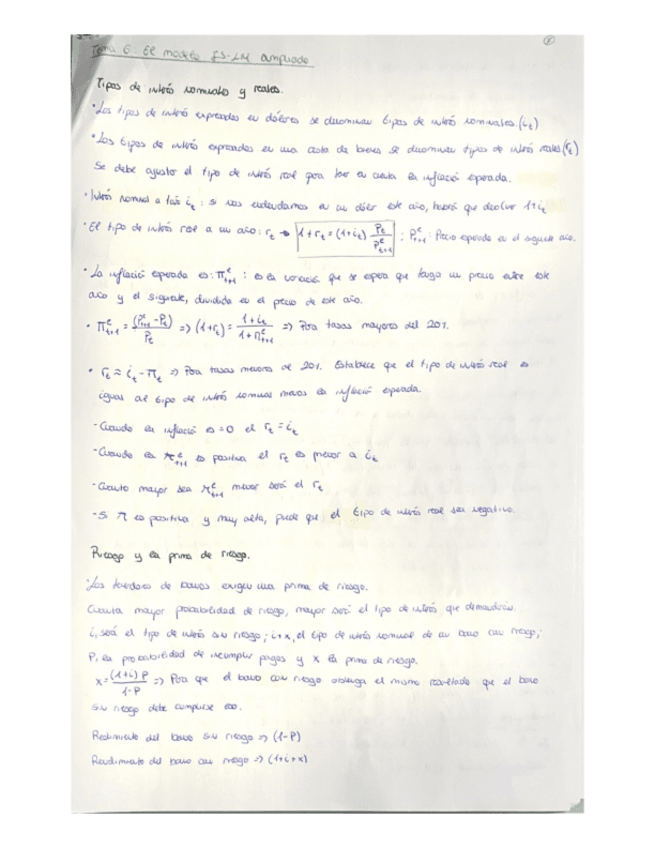 Tema 6. El modelo IS-LM ampliado
Tipos de interés nominales y reales.
· Los tipos de interés expresados en dólares se denominan tipos de interés nominales. (iₜ)
· Los tipos de interés expresados en una cesta de bienes se denominan tipos de interés reales (rₜ)
Se debe ajustar el tipo de interés real para tener en cuenta la inflación esperada.
· Interés nominal a 1 año iₜ : si nos endeudamos en un dólar este año, habrá que devolver 1+iₜ
· El tipo de interés real a un año: rₜ → 1+rₜ = (1+iₜ) Pₜ / Pᵉₜ₊₁ ; Pᵉₜ₊₁: Precio esperado en el siguiente año.
· La inflación esperada es: πᵉₜ₊₁ : es la variación que se espera que tenga un precio entre este
año y el siguiente, dividida en el precio de este año.
· πᵉₜ₊₁ = (Pᵉₜ₊₁ - Pₜ) / Pₜ => (1+rₜ) = 1+iₜ / 1+πᵉₜ₊₁ => Para tasas mayores del 20%.
· rₜ ≈ iₜ - πₜ => Para tasas menores al 20%. Establece que el tipo de interés real es
igual al tipo de interés nominal menos la inflación esperada.
- Cuando la inflación es = 0 el rₜ = iₜ
- Cuando la πᵉₜ₊₁ es positiva el rₜ es menor a iₜ
- Cuanto mayor sea πᵉₜ₊₁ menor será el rₜ
- Si π es positiva y muy alta, puede que el tipo de interés real sea negativo.
Riesgo y la prima de riesgo.
· Los tenedores de bonos exigen una prima de riesgo.
Cuanta mayor probabilidad de riesgo, mayor será el tipo de interés que demandarán.
i, será el tipo de interés sin riesgo; i+x, el tipo de interés nominal de un bono con riesgo;
P, la probabilidad de incumplir pagos y x la prima de riesgo.
x = (1+i) P / 1-P => Para que el bono con riesgo obtenga el mismo resultado que el bono
sin riesgo debe cumplirse eso.
Rendimiento del bono sin riesgo => (1-P)
Rendimiento del bono con riesgo => (1+i+x)